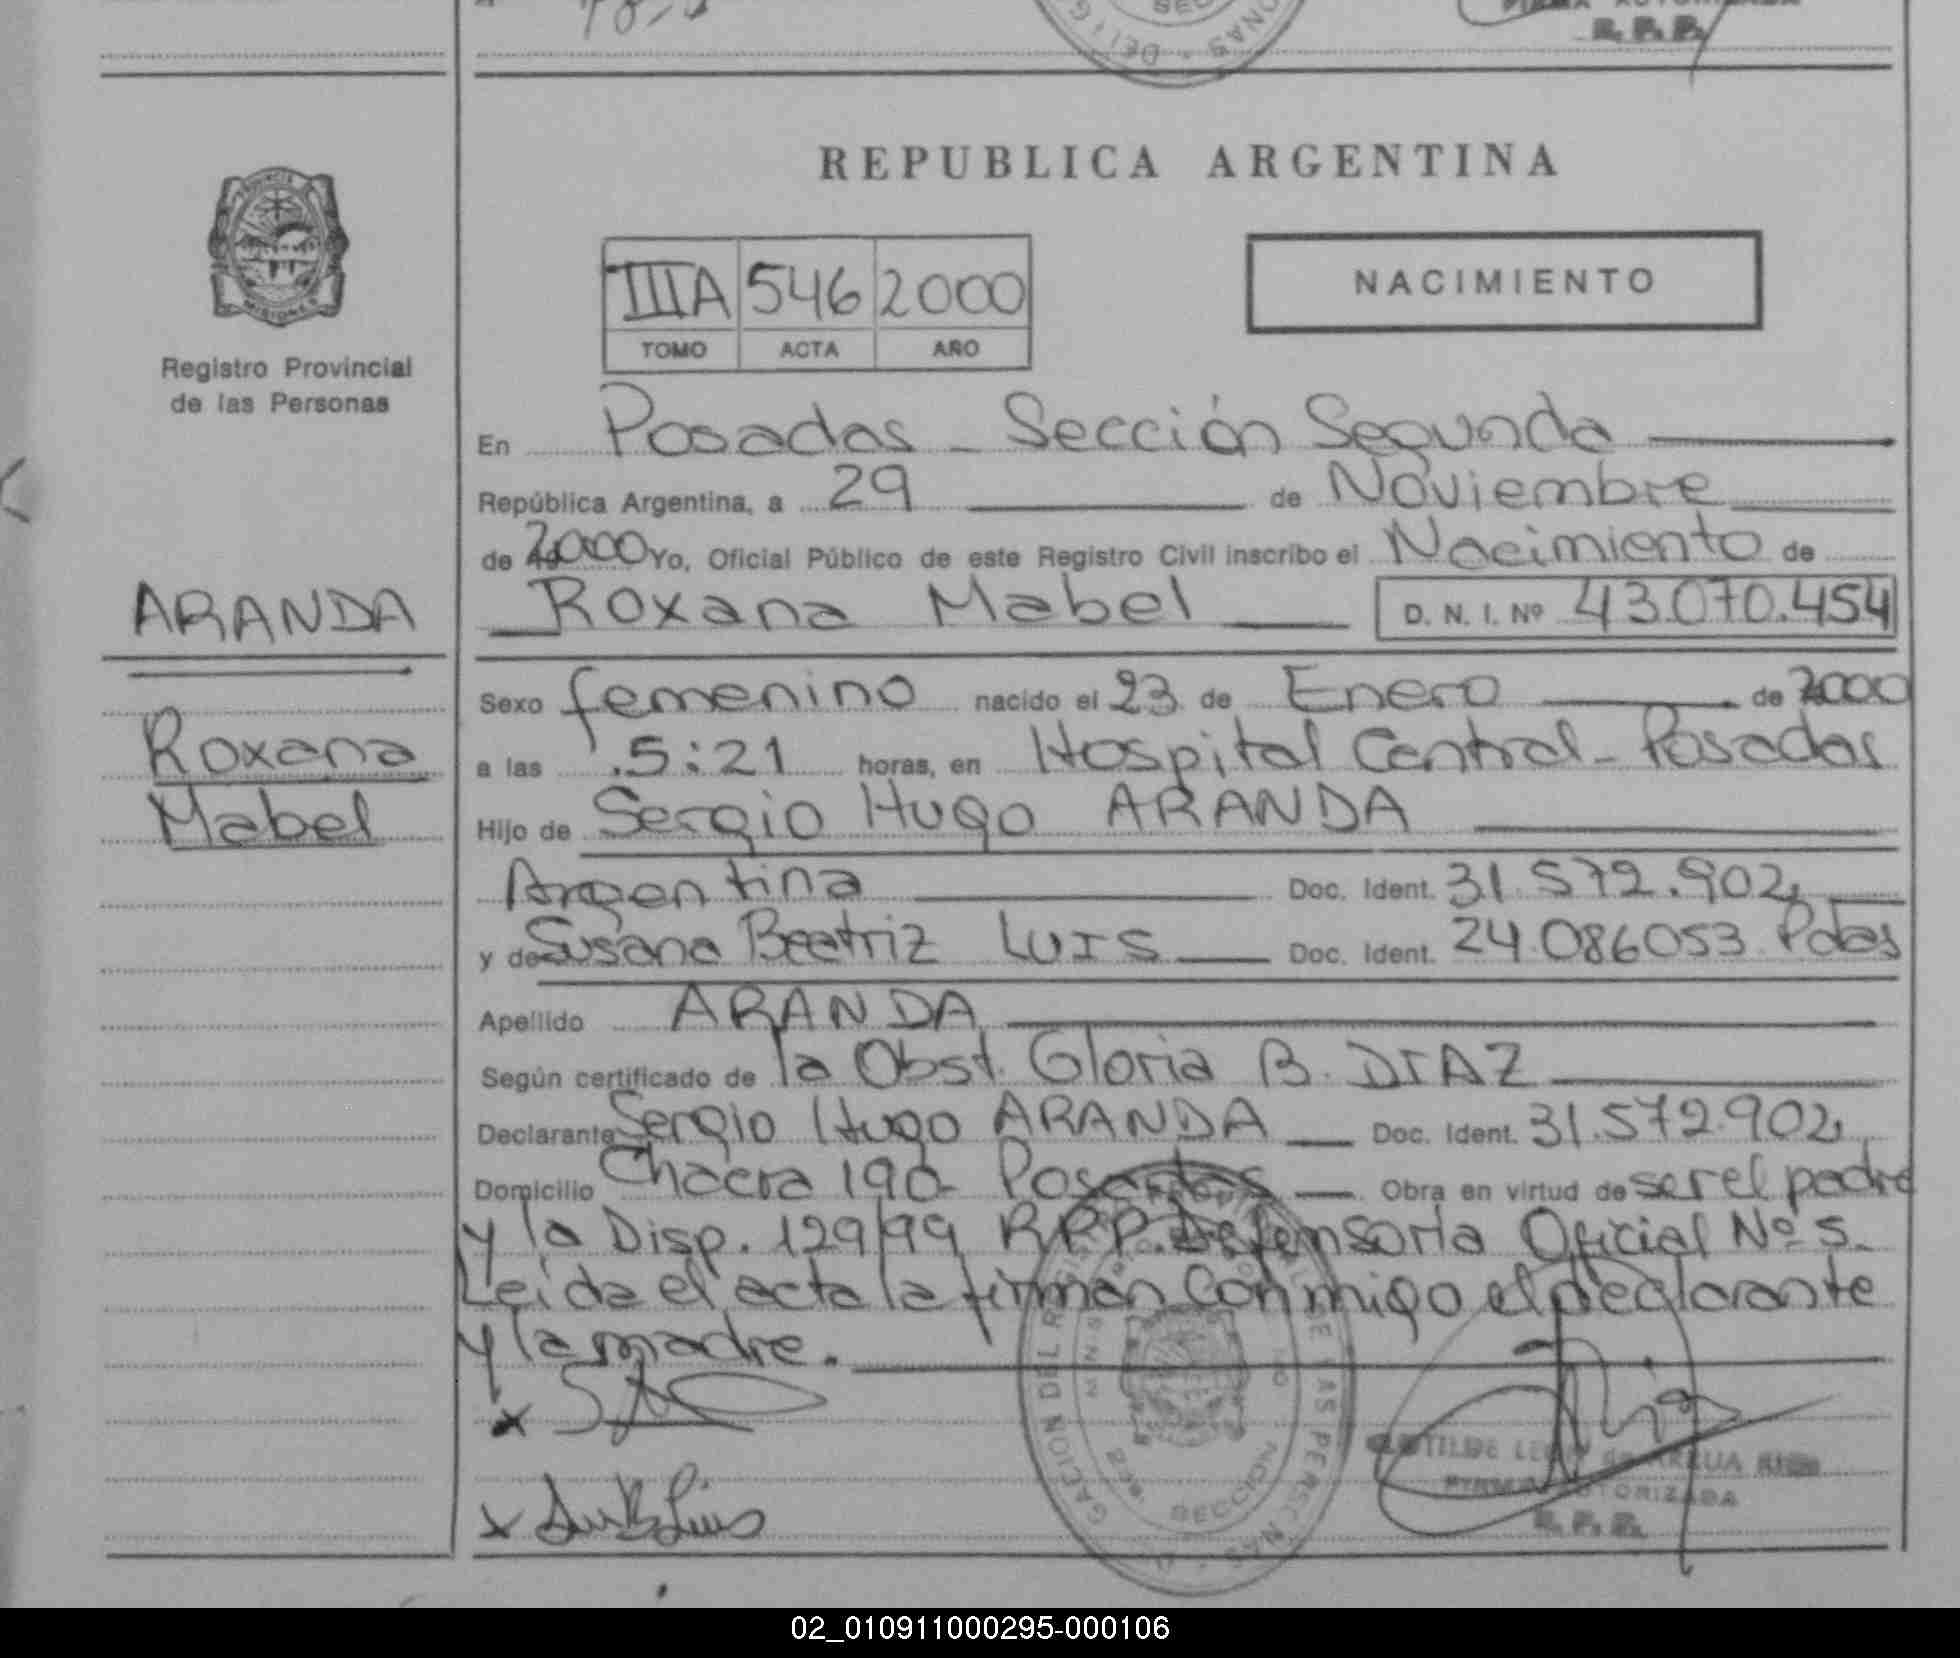 SEC
FIRMA AUTORIZADA
R. P. P.
REPUBLICA ARGENTINA
PROVINCIA
MISIONES
Registro Provincial
de las Personas
IIIA 546 2000
TOMO ACTA AÑO
NACIMIENTO
En Posadas - Sección Segunda
República Argentina, a 29 de Noviembre
de 2000 Yo, Oficial Público de este Registro Civil inscribo el Nacimiento de
ARANDA
Roxana Mabel D. N. I. Nº 43.070.454
Sexo femenino nacido el 23 de Enero de 2000
Roxana
Mabel
a las 5:21 horas, en Hospital Central - Posadas
Hijo de Sergio Hugo ARANDA
Argentina Doc. Ident. 31.572.902
y de Susana Beatriz LUIS Doc. Ident. 24.086053 Pdas
Apellido ARANDA
Según certificado de la Obst. Gloria B. DIAZ
Declarante Sergio Hugo ARANDA Doc. Ident. 31.572.902
Domicilio Chacra 190 - Posadas Obra en virtud de ser el padre
y la Disp. 129/99 R.P.P. Defensoria Oficial Nº 5.
Leida el acta la firman conmigo el declarante
y la madre.
SECCION
FIRMA AUTORIZADA
R. P. P.
02_010911000295-000106